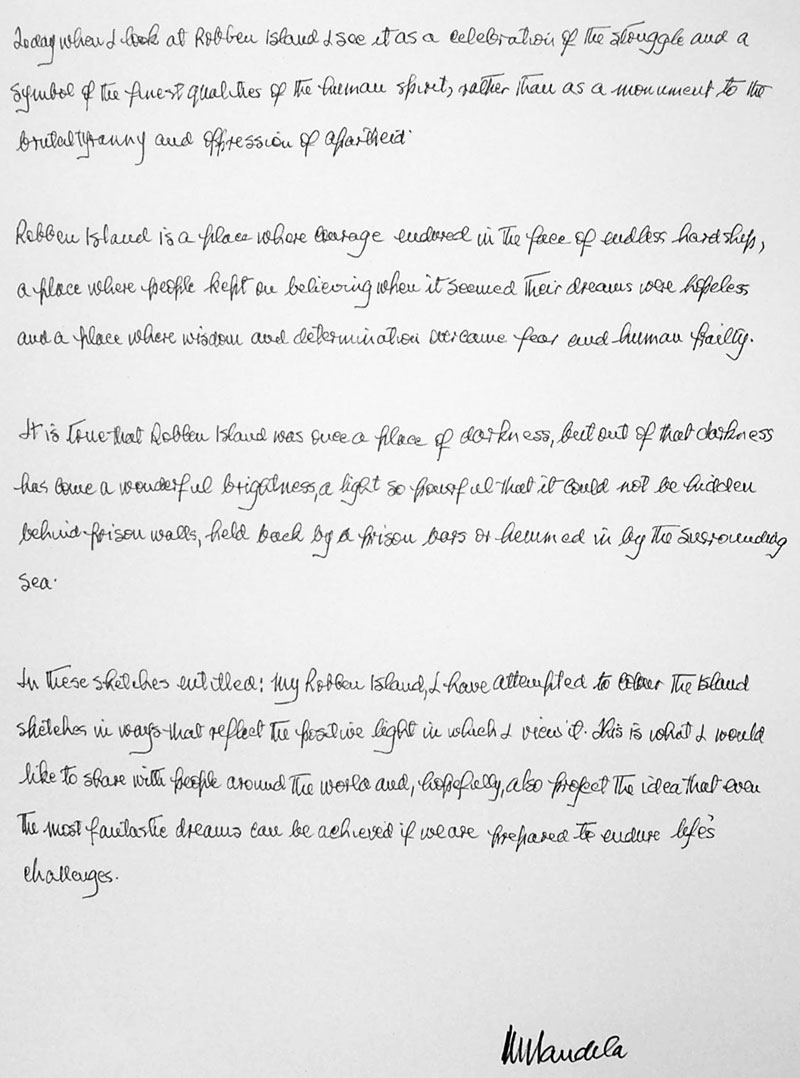 Today when I look at Robben Island I see it as a celebration of the struggle and a
symbol of the finest qualities of the human spirit, rather than as a monument to the
brutal tyranny and oppression of apartheid.
Robben Island is a place where courage endured in the face of endless hardship,
a place where people kept on believing when it seemed their dreams were hopeless
and a place where wisdom and determination overcame fear and human frailty.
It is true that Robben Island was once a place of darkness, but out of that darkness
has come a wonderful brightness, a light so powerful that it could not be hidden
behind prison walls, held back by a prison bars or hemmed in by the surrounding
sea.
In these sketches entitled: My Robben Island, I have attempted to colour the Island
sketches in ways that reflect the positive light in which I view it. This is what I would
like to share with people around the world and, hopefully, also project the idea that even
the most fantastic dreams can be achieved if we are prepared to endure life's
challenges.
NMandela